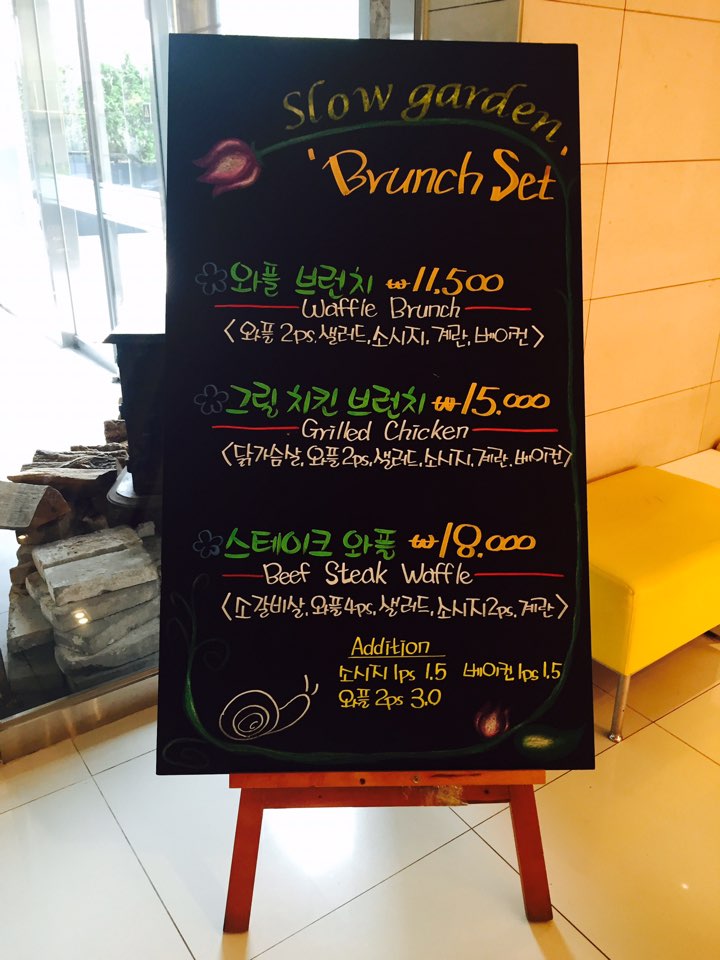 Slow garden
'Brunch Set'
와플 브런치 ₩11.500
Waffle Brunch
<와플 2ps, 샐러드, 소시지, 계란, 베이컨>
그릴 치킨 브런치 ₩15.000
Grilled Chicken
<닭가슴살, 와플2ps, 샐러드, 소시지, 계란, 베이컨>
스테이크 와플 ₩18.000
Beef Steak Waffle
<소갈비살, 와플4ps, 샐러드, 소시지2ps, 계란>
Addition
소시지 1ps 1.5 베이컨 1ps 1.5
와플 2ps 3.0